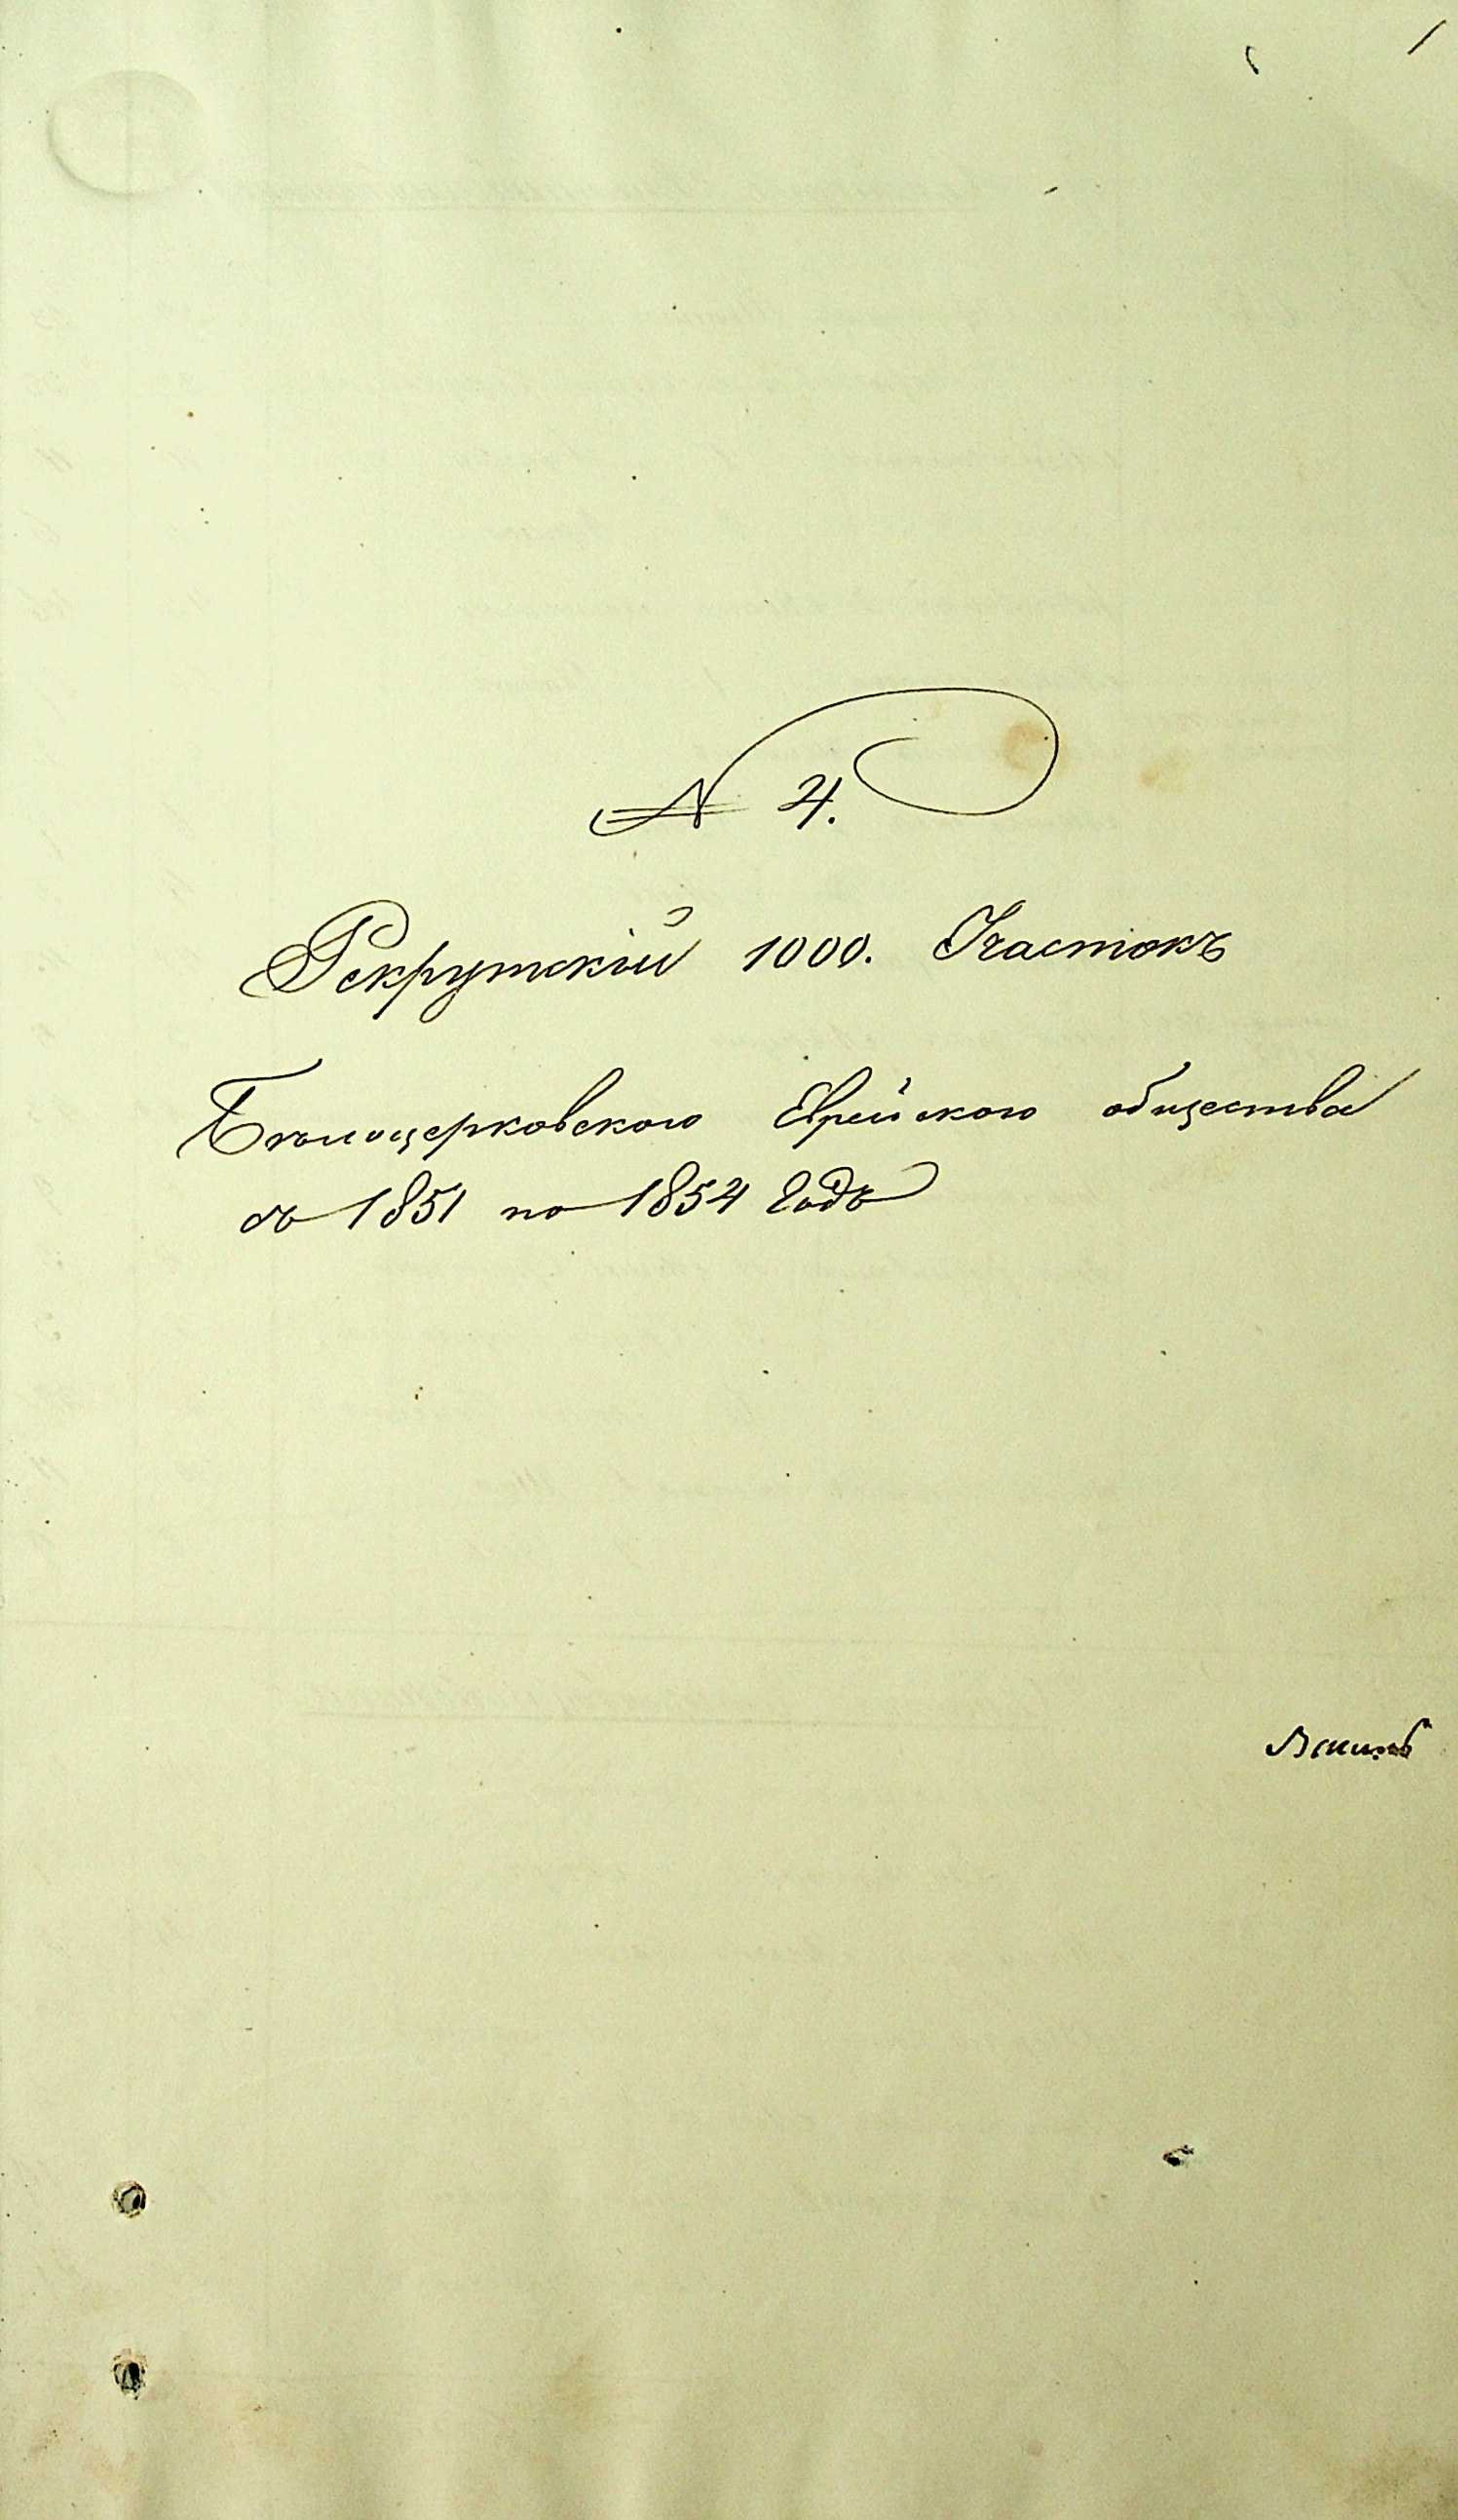 № 4.
Рекрутскій 1000. Участокъ
Бѣлоцерковского Еврейского общества
съ 1851 по 1854 Годъ